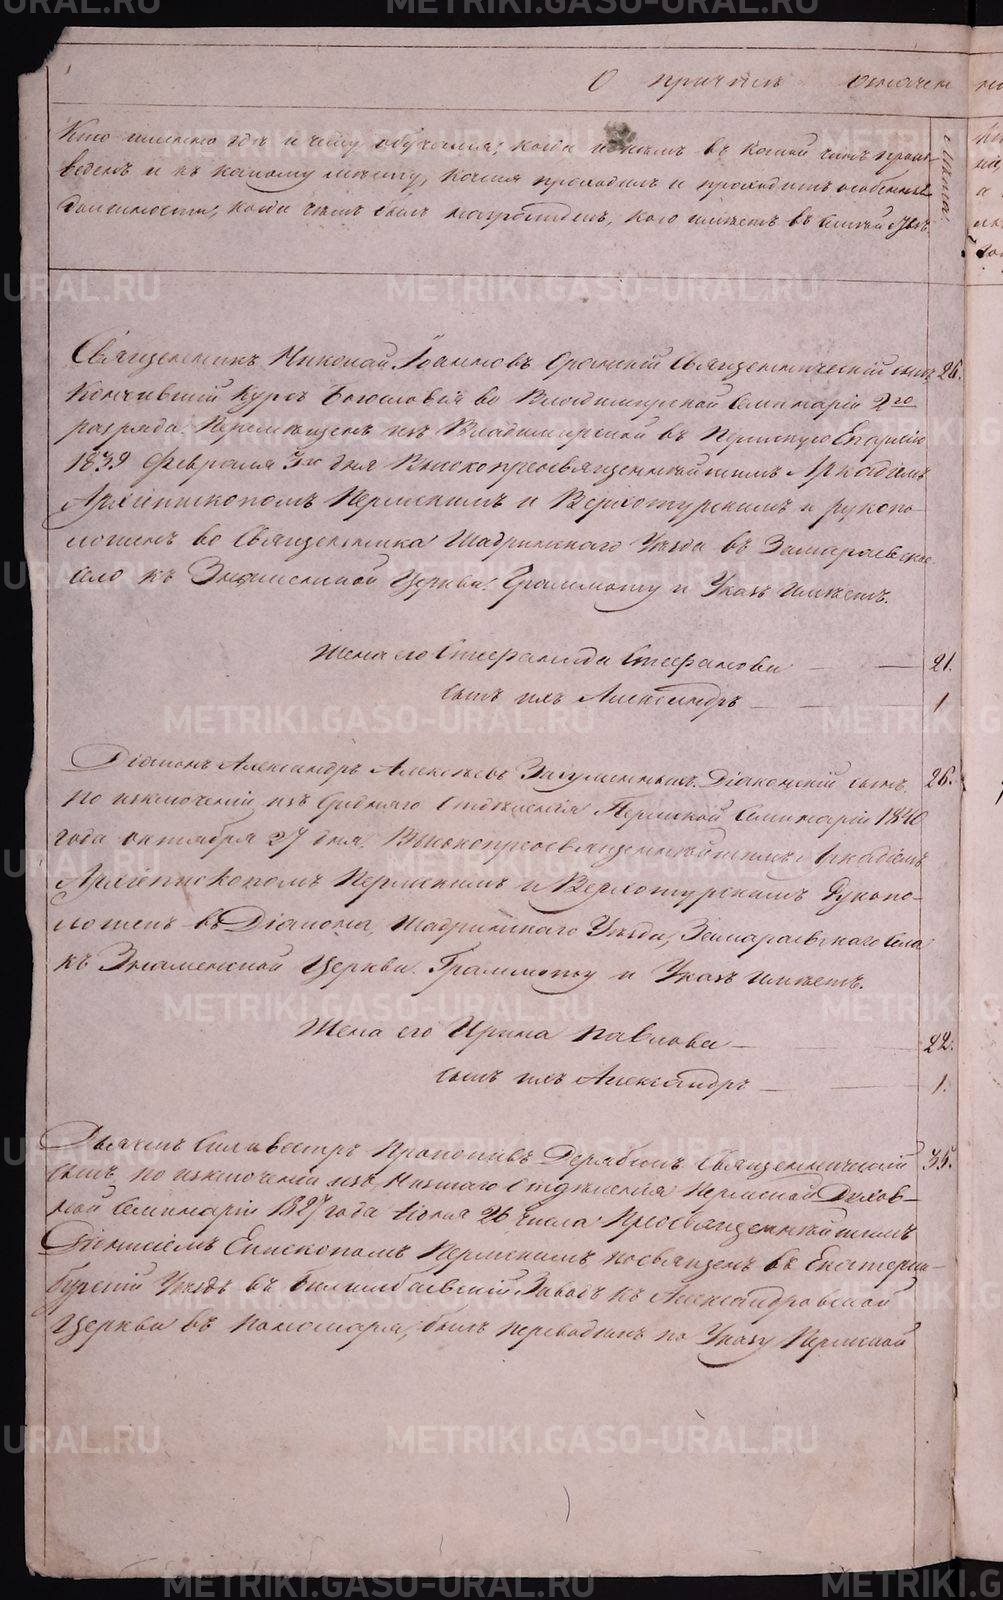 О причтѣ означен
Кто именно где и чему обучался; когда и кѣмъ въ какой чинъ произ-
веденъ и къ какому мѣсту, какія проходилъ и проходитъ особенныя
должности, когда чемъ былъ награжденъ, кого имѣетъ въ семействѣ.
Лѣта
Священникъ Николай Іоанновъ Священническій сынъ 26.
Кончившій Курсъ Богословія во Владимирской Семинаріи 2го
разряда. Перемѣщенъ изъ Владимирской въ Пермскую Епархію
1839 Февраля 3го дня Высокопреосвященнѣйшимъ Аркадіемъ
Архіепископомъ Пермскимъ и Верхотурскимъ и рукопо-
ложенъ во Священника Шадринскаго Уѣзда въ Замараевское
село къ Знаменской Церкви. Граммоту и Указъ имѣетъ.
Жена его Стефанида Стефанова 21.
сынъ ихъ Александръ 1
Діаконъ Александръ Алексѣевъ Діаконскій сынъ, 26.
по изключеніи изъ Средняго Отдѣленія Пермской Семинаріи 1840
года октября 27 дня. Высокопреосвященнѣйшимъ Аркадіемъ
Архіепископомъ Пермскимъ и Верхотурскимъ рукопо-
ложенъ въ Діакона, Шадринскаго Уѣзда, Замараевскаго Села
къ Знаменской Церкви. Граммоту и Указъ имѣетъ.
Жена его Ирина Павлова 22.
сынъ ихъ Александръ 1.
Дьячекъ Силвестръ Прокопіевъ Дерябинъ Священническій 35.
сынъ, по изключеніи изъ Низшаго Отдѣленія Пермской Духов-
ной Семинаріи 1827 года Іюня 26 числа Преосвященнѣйшимъ
Діонисіемъ Епископомъ Пермскимъ, посвященъ въ Екатерин-
бургскій Уѣздъ въ Билимбаевскій Заводъ къ Александровской
Церкви въ пономаря, былъ переводимъ по Указу Пермской
METRIKI.GASO-URAL.RU